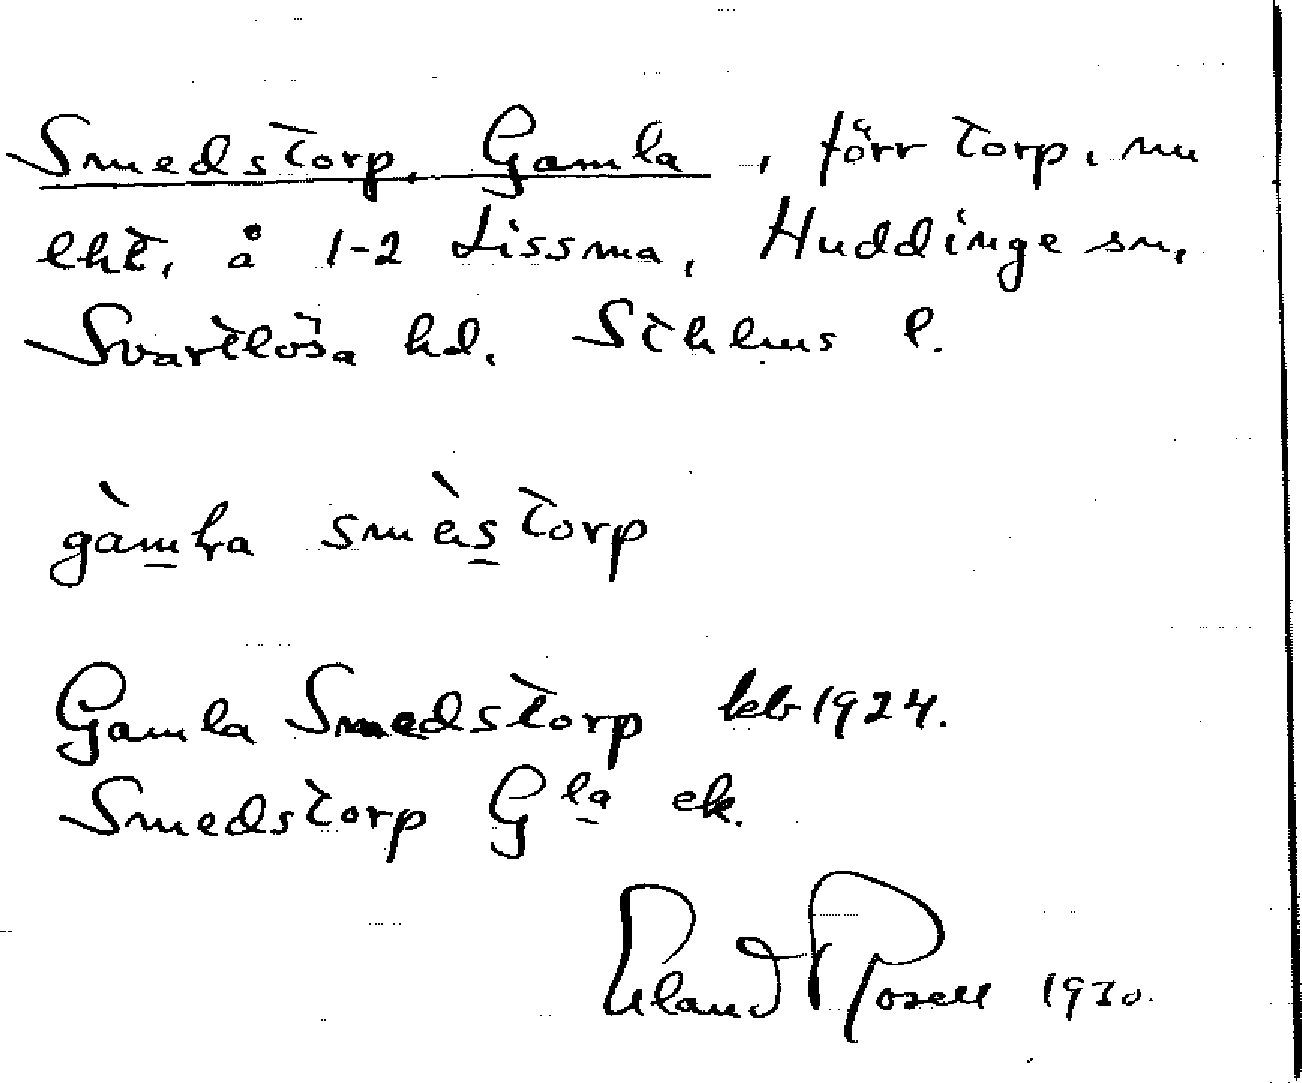 Smedstorp, Gamla, förr torp, nu
lht, å 1-2 Lissma, Huddinge sn,
Svartlösa hd. Sthlms l.
gàmla smèstorp
Gamla Smedstorp kb 1924.
Smedstorp Gla ek.
Erland Rosell 1930.